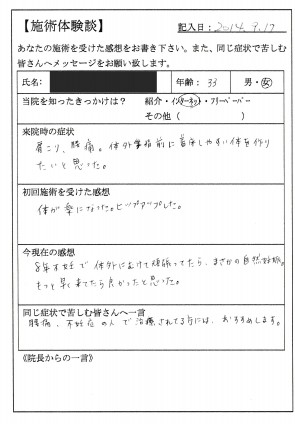 【施術体験談】
記入日：2014.9.17
あなたの施術を受けた感想をお書き下さい。また、同じ症状で苦しむ
皆さんへメッセージをお願い致します。
氏名：
年齢：33
男・女
当院を知ったきっかけは？
紹介・インターネット・フリーペーパー
その他（　　　）
来院時の症状
肩こり、腰痛。体外受精前に着床しやすい体を作り
たいと思った。
初回施術を受けた感想
体が楽になった。ヒップアップした。
今現在の感想
8年不妊で体外にむけて頑張ってたら、まさかの自然妊娠。
もっと早く来てたら良かったと思った。
同じ症状で苦しむ皆さんへ一言
腰痛、不妊症の人で治療されてる方には、おすすめします。
《院長からの一言》